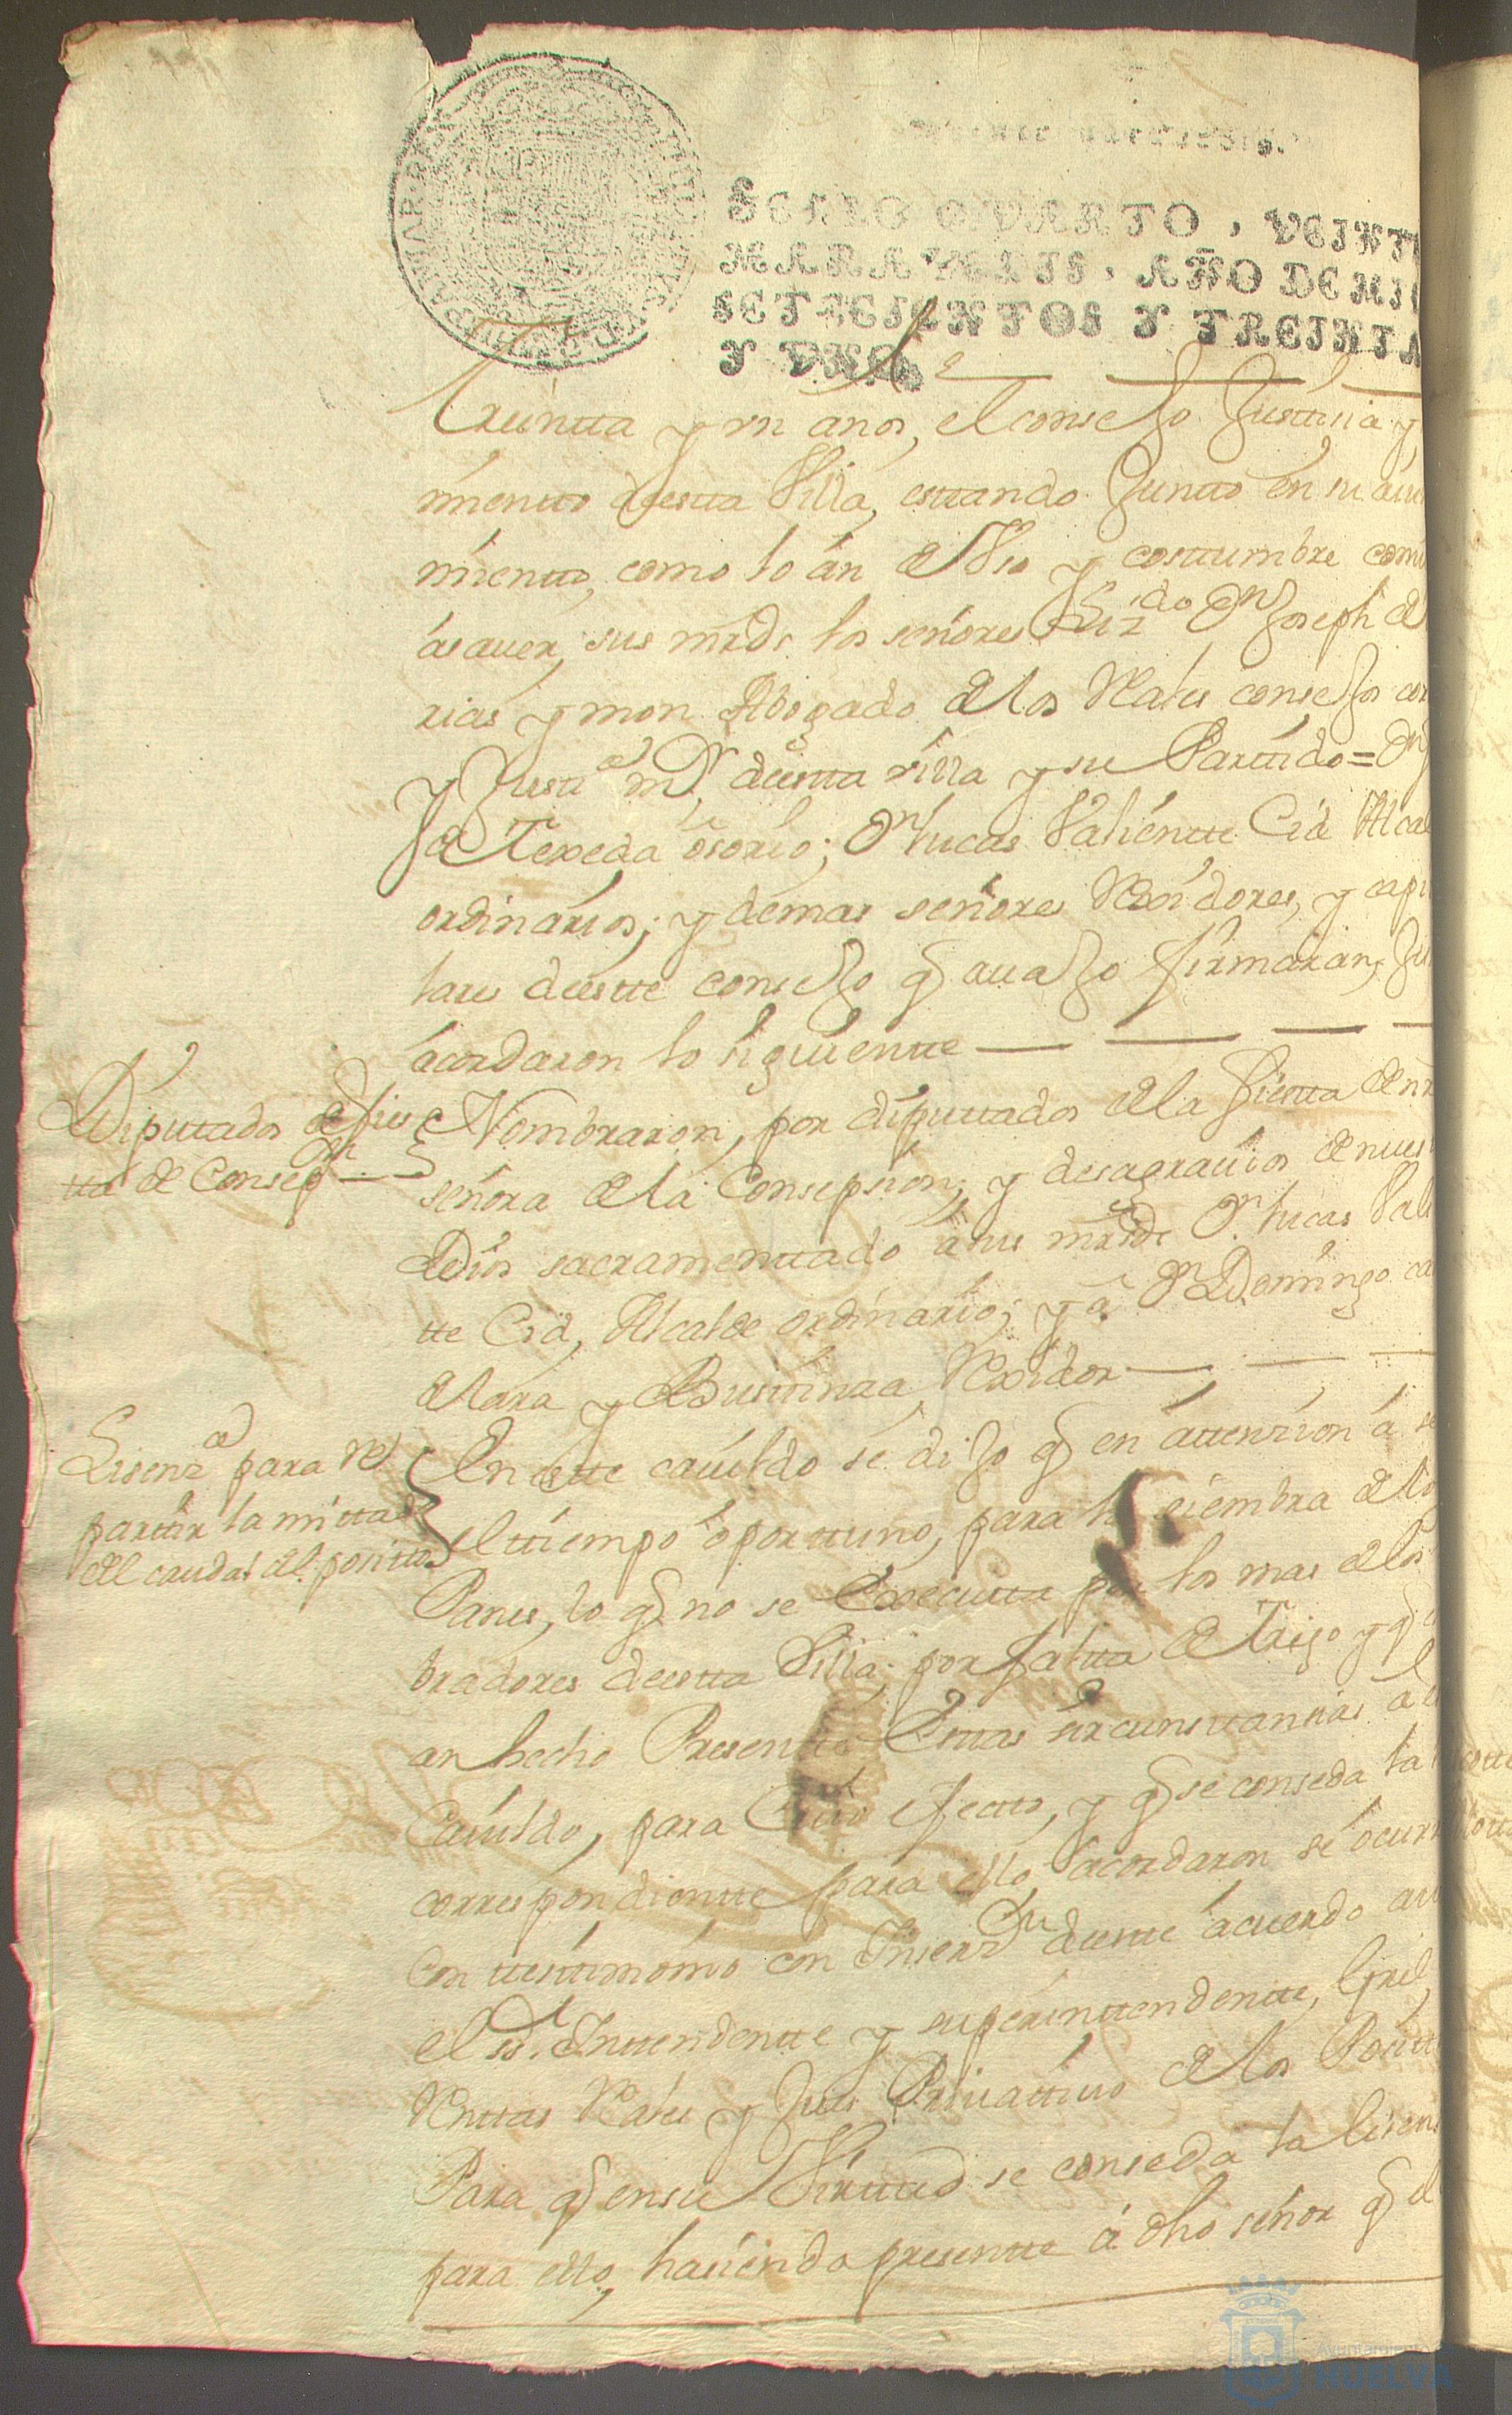 SELLO QVARTO, VEINT
MARAVEDIS, AÑO DE MIL
SETECIENTOS Y TREINTA
Y VNO.
treintta y un años, el consejo Justicia y
mientto deestta Villa, esttando Juntto en su aiu
mientto, como lo án de Uso y costtumbre com
asauer, sus mrds. los señores Liz.do Dn Joseph de
rias y mon Abogado de los Rales consejos cor
y Justa. mr. deestta villa y su Parttido = Dn
Texeda ósorio; Dn Lucas Valientte Cid Alcal
ordinarios; y demas señores Rexidores, y capi
lares deestte consejo q avajo firmarán,
ácordaron lo siguientte
Diputtados de fies
tta de Consepn
Nombraron, por diputtados de la fiestta de nr
señora de la Consepsion; y desagrauios de nues
Dios sacramenttado á sus mrds. Dn Lucas Vali
tte Cid, Alcalde ordinario; y a Dn Domingo ca
de Lara y Busttinaa, Rexidor
Lisenza para re
parttir la mittad
del caudal del positto
En estte cauildo se dijo q en áttenzion á se
el ttiempo oporttuno, para la siembra de los
Panes, lo q no se Execuitta por los mas de los
bradores deestta Villa, por faltta de Trigo y q
an hecho Presentte Esttas sircunsttansias a el
Cauildo, para Cuio efectto, y q se conseda la
correspondientte para ello, acordaron se ocurr
Con ttesttimonio con Inserzon deestte ácuerdo an
el Sr. Inttendentte y superinttendentte, Grel,
Renttas Rales y Jues Priuattiuo de los Positt
Para q en su Virttud se conseda la lisen
para ello, hasiendo presentte á dho señor q el
Ayuntamiento
HUELVA